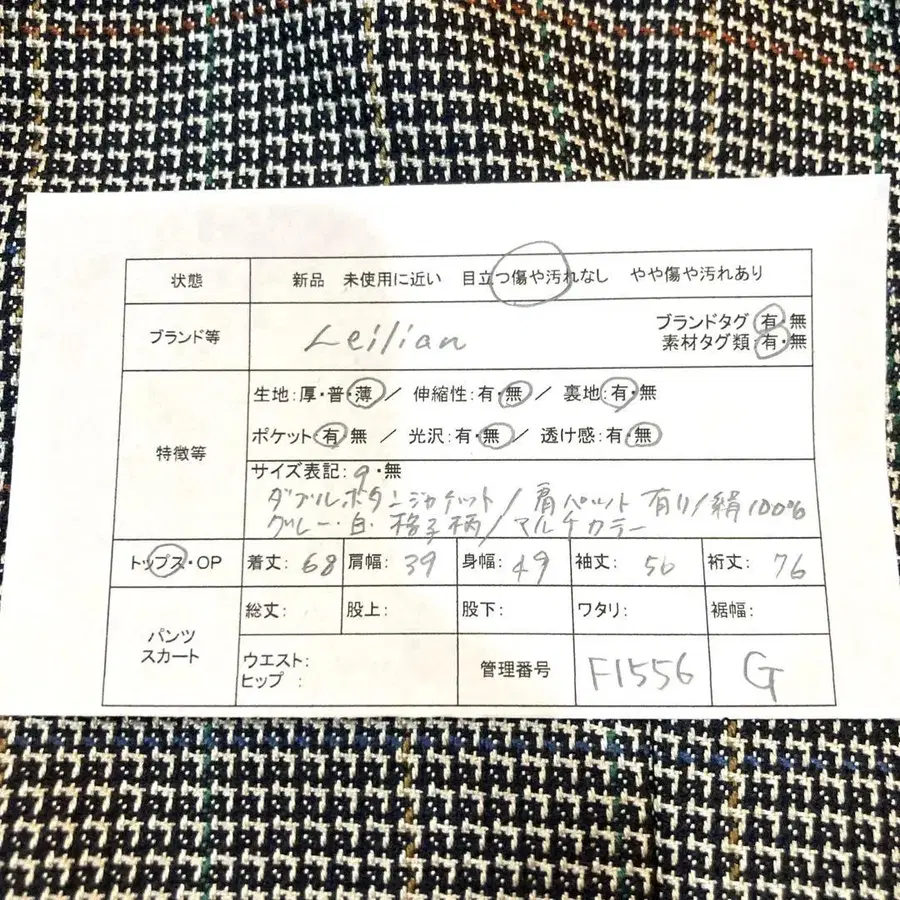 状態 新品 未使用に近い 目立つ傷や汚れなし やや傷や汚れあり
ブランド等 Leilian ブランドタグ 有・無
素材タグ類:有・無
特徴等
生地:厚・普・薄 / 伸縮性:有・無 / 裏地:有・無
ポケット:有・無 / 光沢:有・無 / 透け感:有・無
サイズ表記: 9・無
ダブルボタンジャケット/肩パット有り/絹100%
グレー・白・格子柄/マルチカラー
トップス・OP 着丈: 68 肩幅: 39 身幅: 49 袖丈: 56 裄丈: 76
パンツ
スカート
総丈: 股上: 股下: ワタリ: 裾幅:
ウエスト:
ヒップ :
管理番号 F1556 G